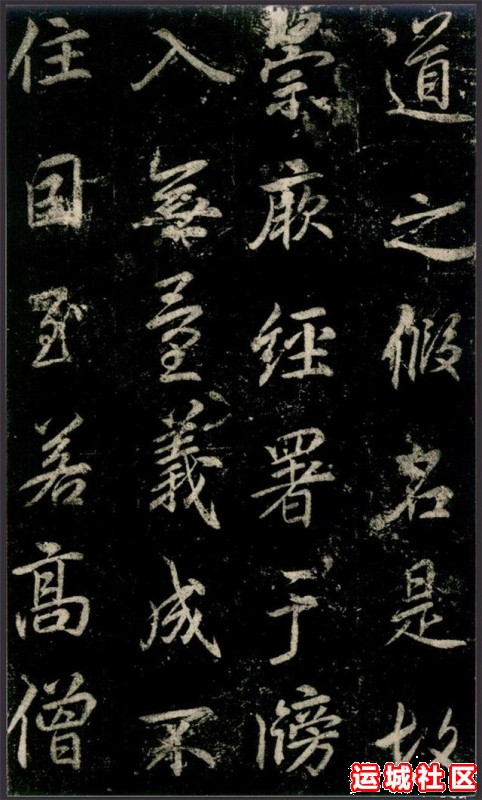 道之假名是故
崇厥经署于牓
入無量義成不
住因至若高僧
运城社区